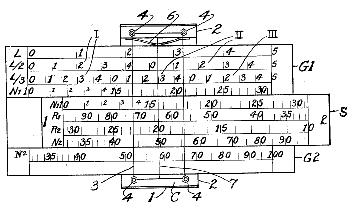 4 6 4 2
I II III
L 0 1 2 3 4 5
L/2 0 1 2 3 4 0 1 2 3 4 5
L/3 0 1 2 3 4 0 1 2 3 4 0 1 2 3 4 5
N1 10 1 2 3 4 15 20 25 30
G1
N1 10 1 2 3 4 15 20 25 30
R1 90 80 70 60 50 40 35
R2 30 25 20 15 10
N2 35 40 50 60 70 80 90
1 2 S
N2 35 40 50 60 70 80 90 100
G2
3 7
4 1 C 2 4